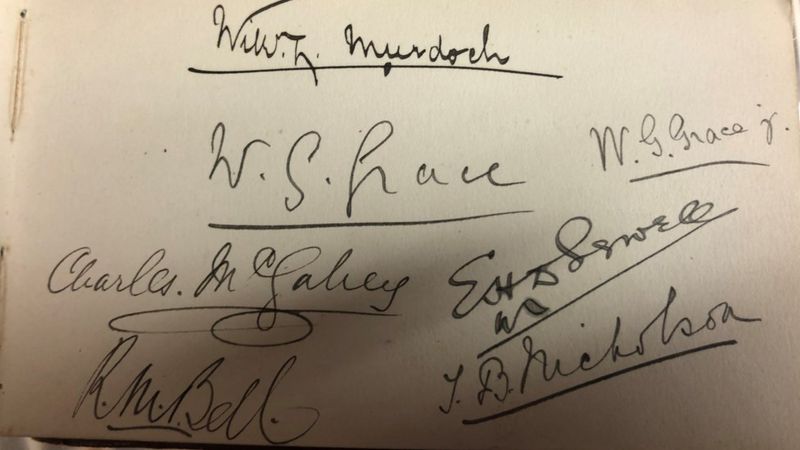 Will. L. Murdoch
W. G. Grace
W. G. Grace jr.
Charles. McGahey
E H D Sewell
R. M. Bell.
J. B. Nicholson